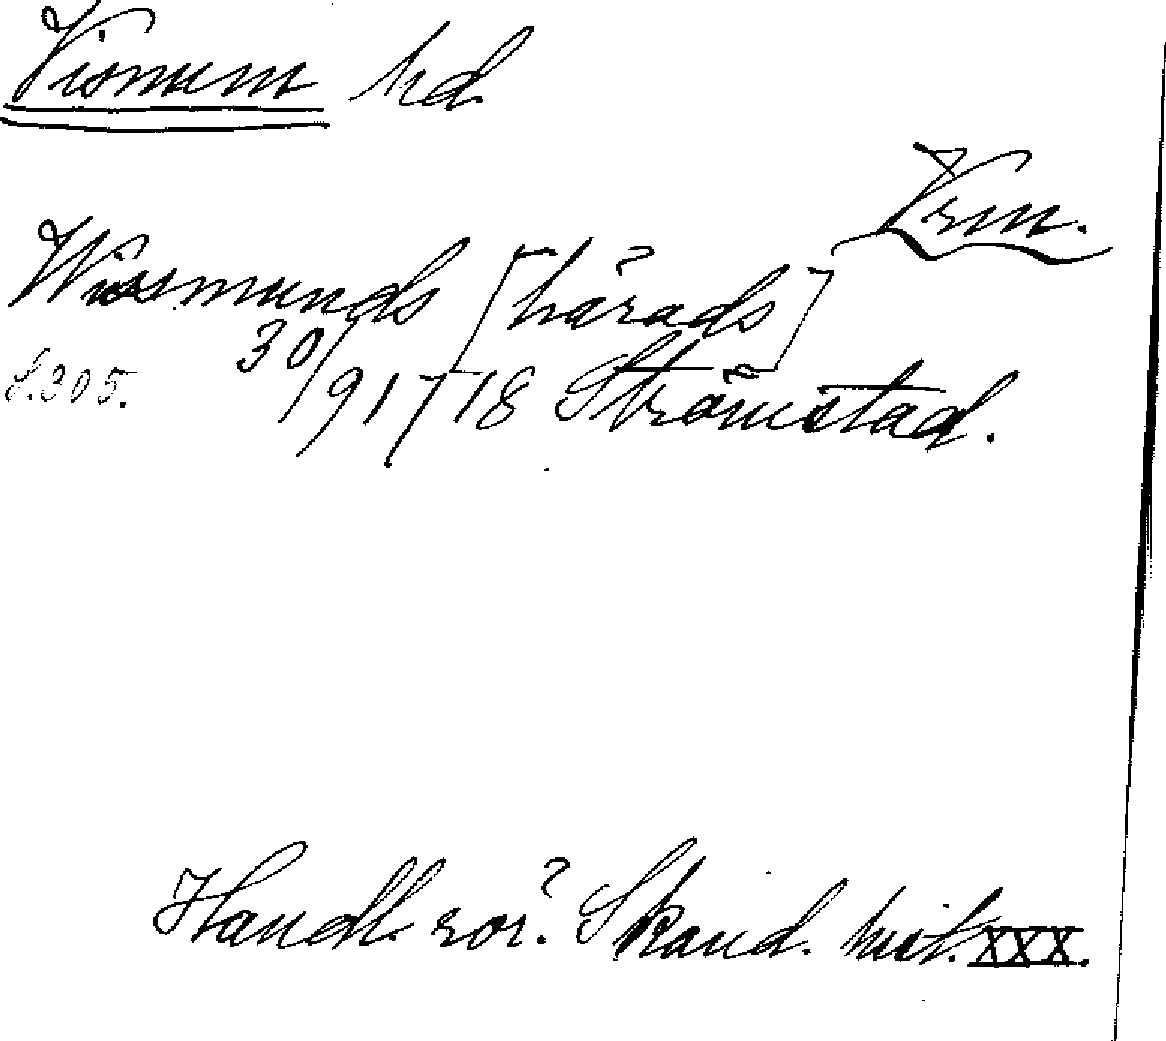 Visnum hd
Vrm.
Wissmunds [härads]
S. 305. 30/9 1718 Strömstad.
Handl. rör. Skand. hist. XXX.